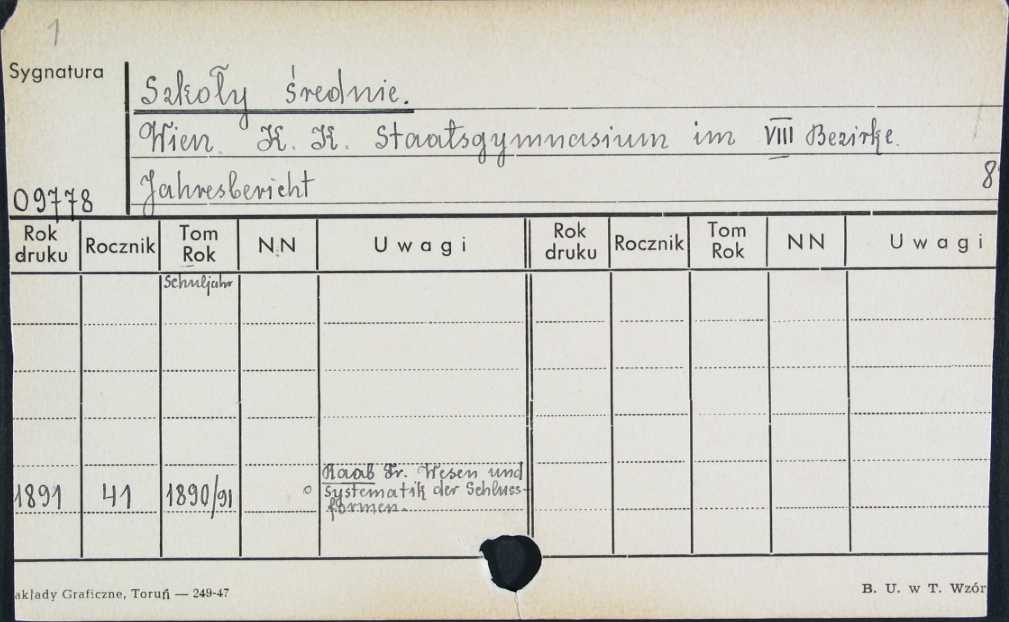 1
Sygnatura
Szkoły średnie.
Wien. K. K. Staatsgymnasium im VIII Bezirke.
Jahresbericht 8°
09778
Rok druku Rocznik Tom Rok NN Uwagi Rok druku Rocznik Tom Rok NN Uwagi
Schuljahr
1891 41 1890/91 ○ Raab Fr. Wesen und
Systematik der Schluss-
formen.
akłady Graficzne, Toruń — 249-47 B. U. w T. Wzór